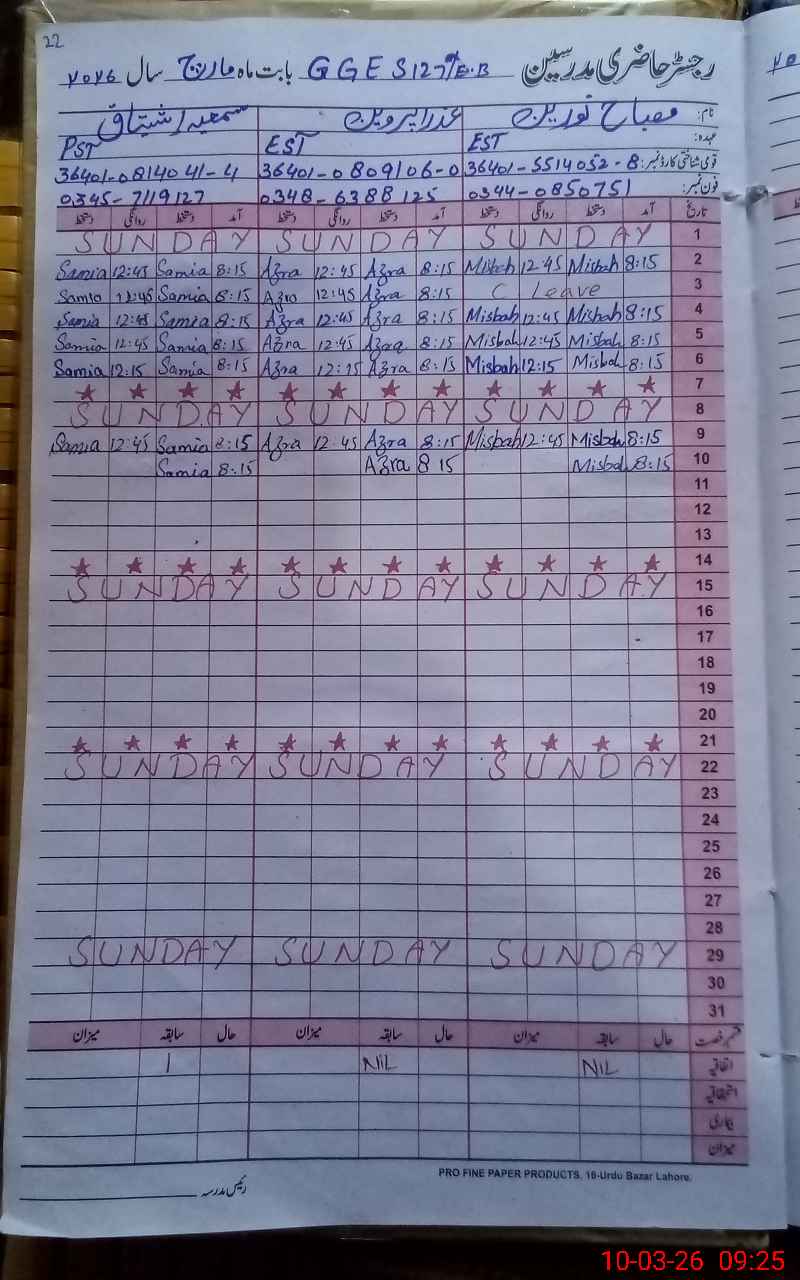 22
رجسٹر حاضری مدرسین GGES 127/E.B بابت ماہ مارچ سال ۲۰۲۶
نام: مصباح نورین عذرا پروین سمعیہ اشتیاق
عہدہ: EST EST PST
قومی شناختی کارڈ نمبر: 36401-5514052-8 36401-0809106-0 36401-0814041-4
فون نمبر: 0344-0850751 0348-6388125 0345-7119127
تاریخ آمد دستخط روانگی دستخط آمد دستخط روانگی دستخط آمد دستخط روانگی دستخط
SUNDAY SUNDAY SUNDAY 1
Samia 12:45 Samia 8:15 Azra 12:45 Azra 8:15 Misbah 12:45 Misbah 8:15 2
Samia 12:45 Samia 8:15 Azra 12:45 Azra 8:15 C Leave 3
Samia 12:45 Samia 8:15 Azra 12:45 Azra 8:15 Misbah 12:45 Misbah 8:15 4
Samia 12:45 Samia 8:15 Azra 12:45 Azra 8:15 Misbah 12:45 Misbah 8:15 5
Samia 12:15 Samia 8:15 Azra 12:15 Azra 8:15 Misbah 12:15 Misbah 8:15 6
7
SUNDAY SUNDAY SUNDAY 8
Samia 12:45 Samia 8:15 Azra 12:45 Azra 8:15 Misbah 12:45 Misbah 8:15 9
Samia 8:15 Azra 8 15 Misbah 8:15 10
11
12
13
14
SUNDAY SUNDAY SUNDAY 15
16
17
18
19
20
21
SUNDAY SUNDAY SUNDAY 22
23
24
25
26
27
28
SUNDAY SUNDAY SUNDAY 29
30
31
قسم رخصت حال سابقہ میزان حال سابقہ میزان حال سابقہ میزان
اتفاقیہ NIL NIL 1
استحقاقیہ
بیماری
میزان
PRO FINE PAPER PRODUCTS. 16-Urdu Bazar Lahore.
رئیس مدرسہ
10-03-26 09:25